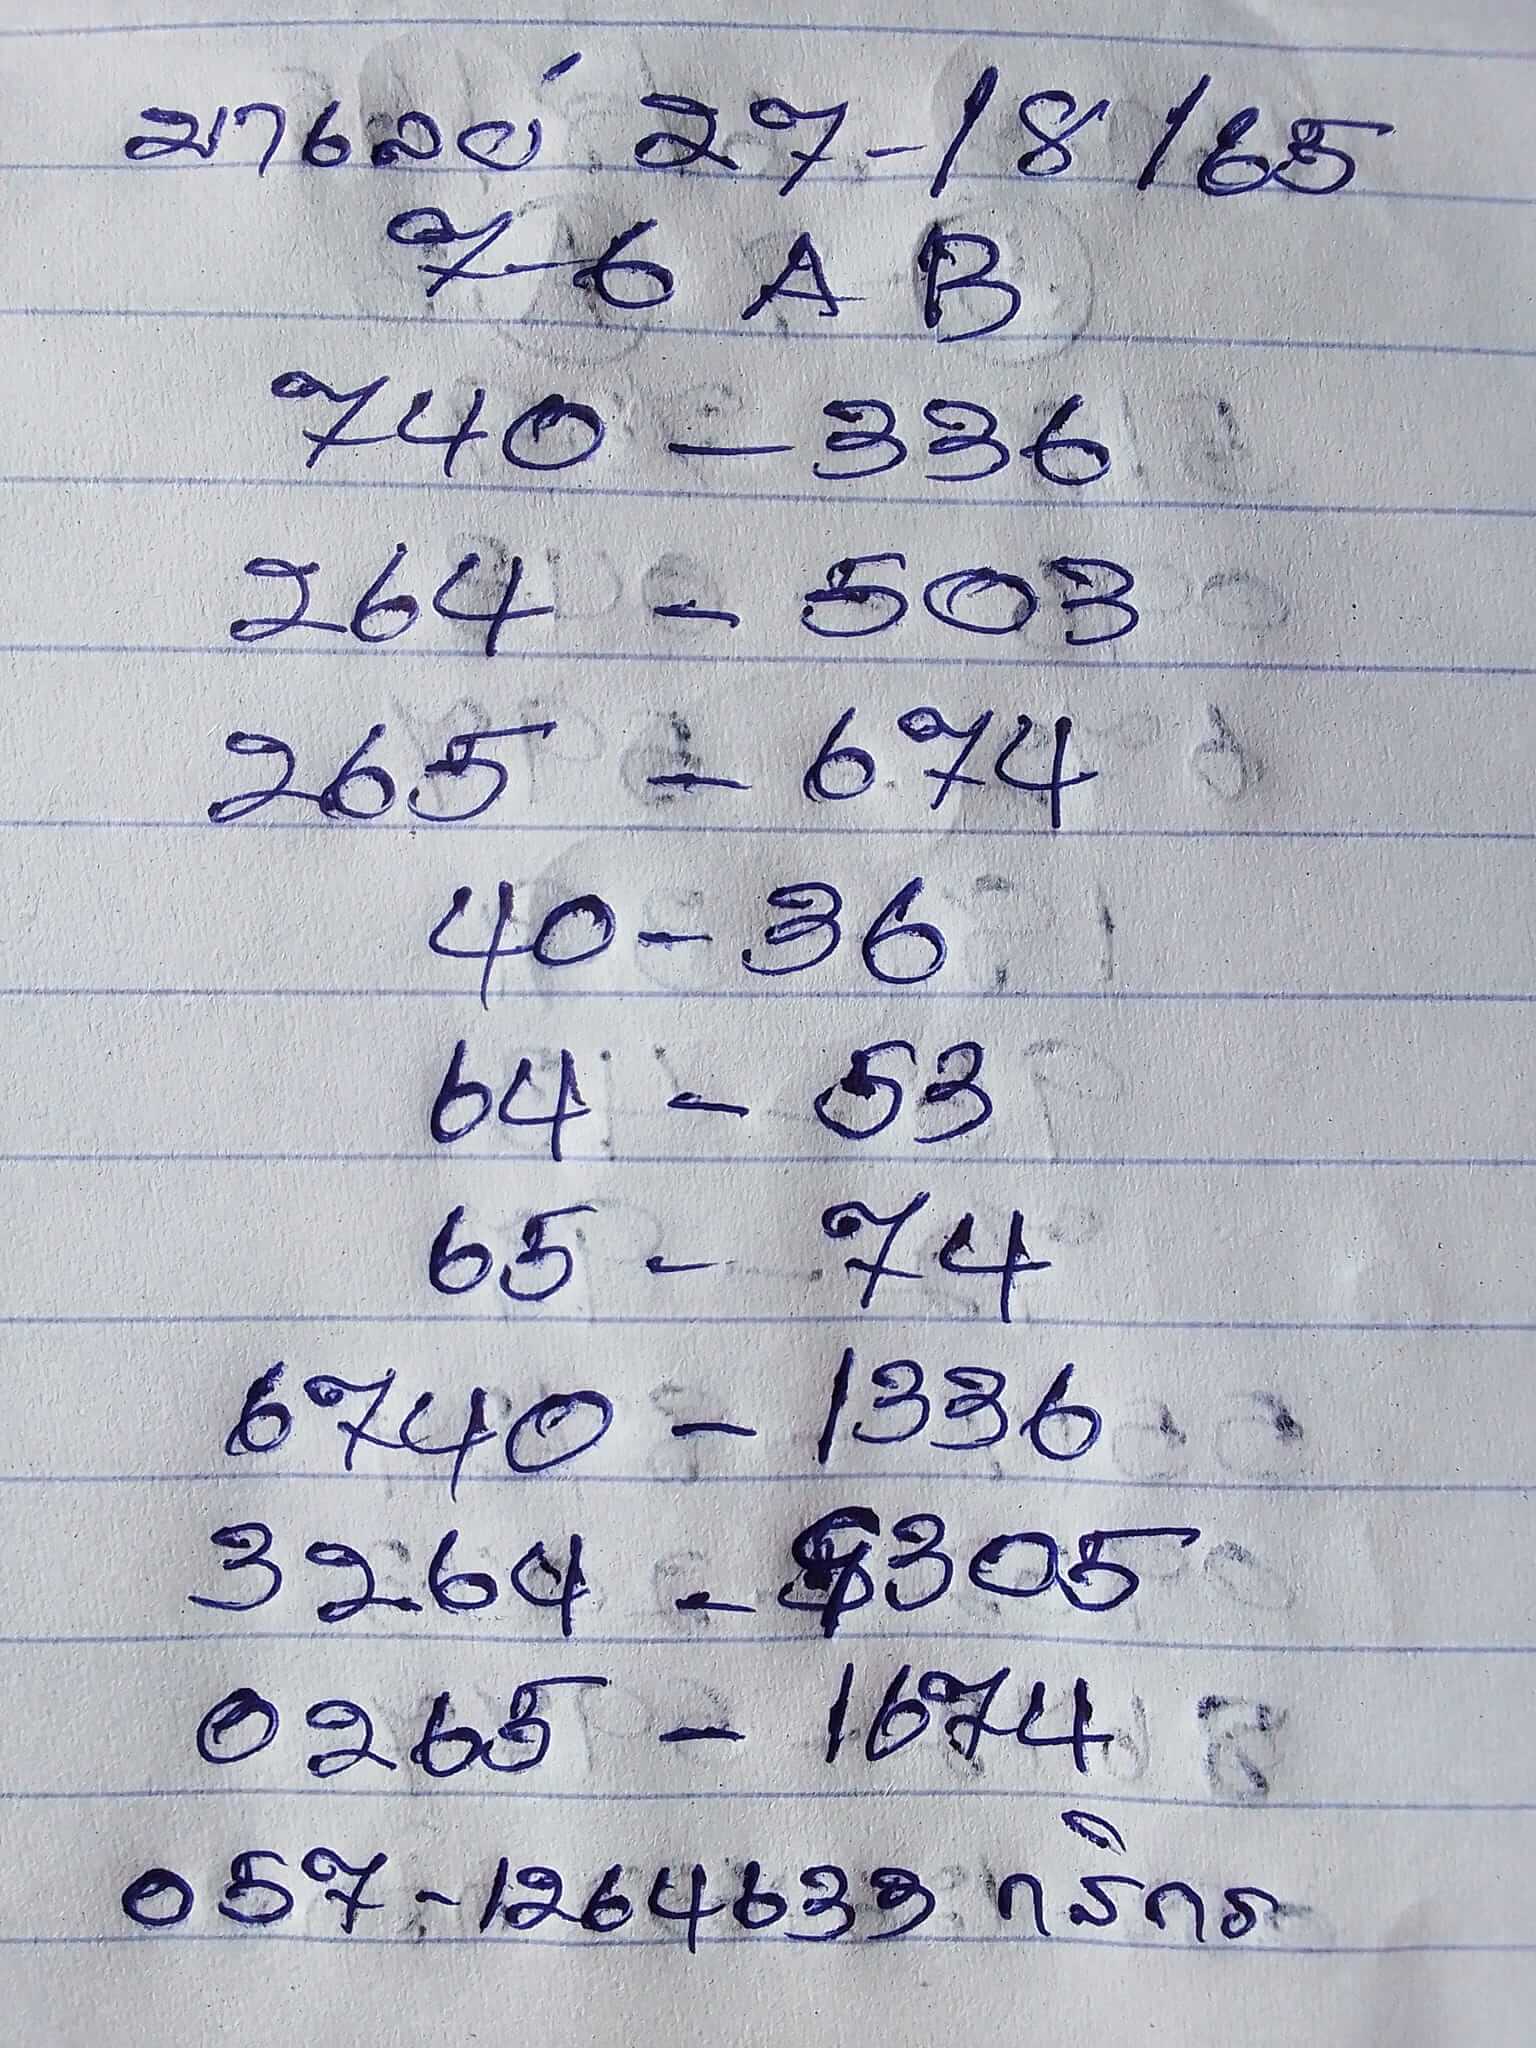 มาเลย์ 27-/8/65
7-6 A B
740 - 336
264 - 503
265 - 674
40 - 36
64 - 53
65 - 74
6740 - 1336
3264 - 305
0265 - 1674
057-1264633